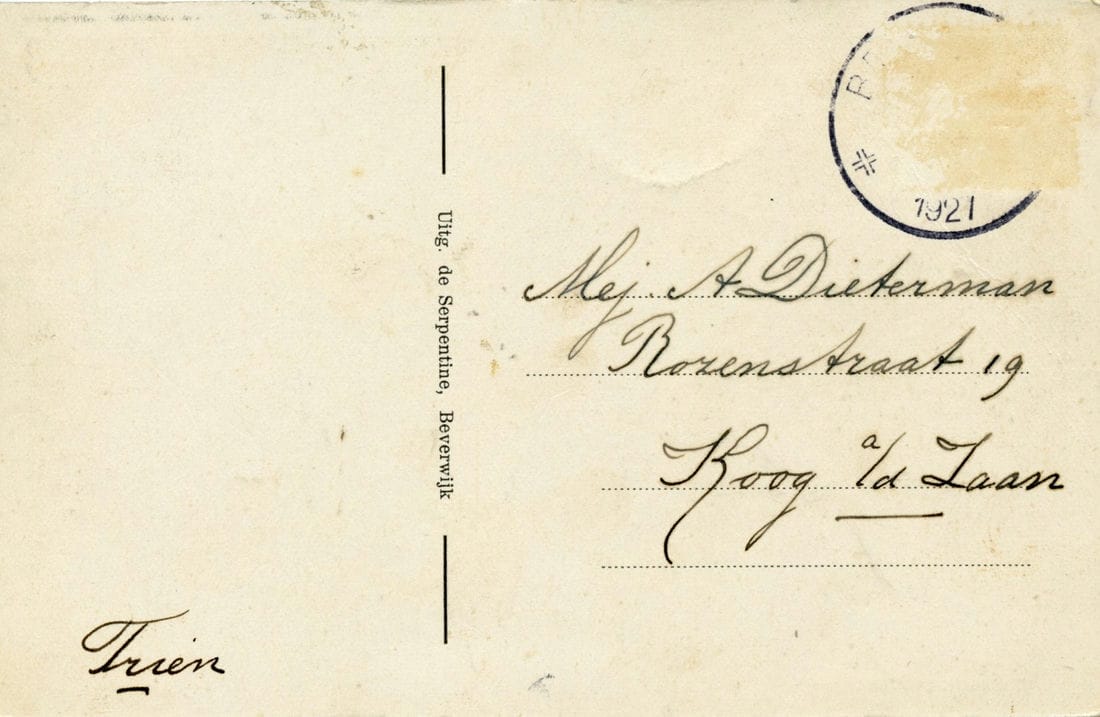 1921
Uitg. de Serpentine, Beverwijk
Mej. A Dieterman
Rozenstraat 19
Koog a/d Zaan
Trien